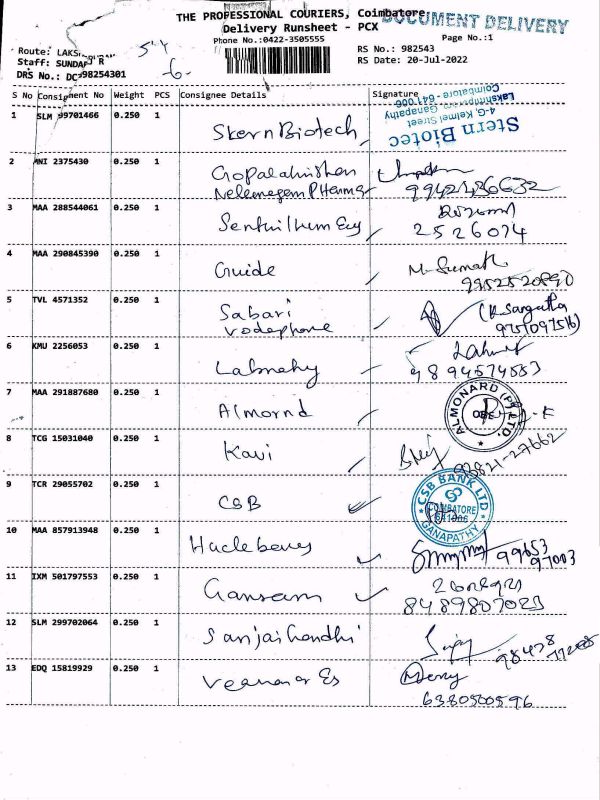 THE PROFESSIONAL COURIERS, Coimbatore
DOCUMENT DELIVERY
Delivery Runsheet - PCX
Phone No.:0422-3505555
Page No.:1
Route: LAKS
Staff: SUNDAR R
DRS No.: DC 98254301
-6-
RS No.: 982543
RS Date: 20-Jul-2022
S No Consignment No Weight PCS Consignee Details Signature
1 SLM 99701466 0.250 1 Stern Biotech
Stern Biotec
4-G, Kelmel Street
Ganapathy
Coimbatore - 641 006
2 MNI 2375430 0.250 1 Gopalakrishan
Neelemegam Pharma 9942486632
3 MAA 288544061 0.250 1
2526074
4 MAA 290845390 0.250 1 Guide M. Sumath
9952520890
5 TVL 4571352 0.250 1 Sabari
vodaphone 9751097516)
6 KMU 2256053 0.250 1
9894574553
7 MAA 291887680 0.250 1 Almornd
ALMONARD (P) LTD.
8 TCG 15031040 0.250 1 Kavi
98821-27662
9 TCR 29055702 0.250 1 CSB
CSB BANK LTD
COIMBATORE
641006
GANAPATHY
10 MAA 857913948 0.250 1 99653
97003
11 IXM 501797553 0.250 1 Gansam
8489807023
12 SLM 299702064 0.250 1 Sanjai Gandhi
98428
13 EDQ 15819929 0.250 1
6380500596